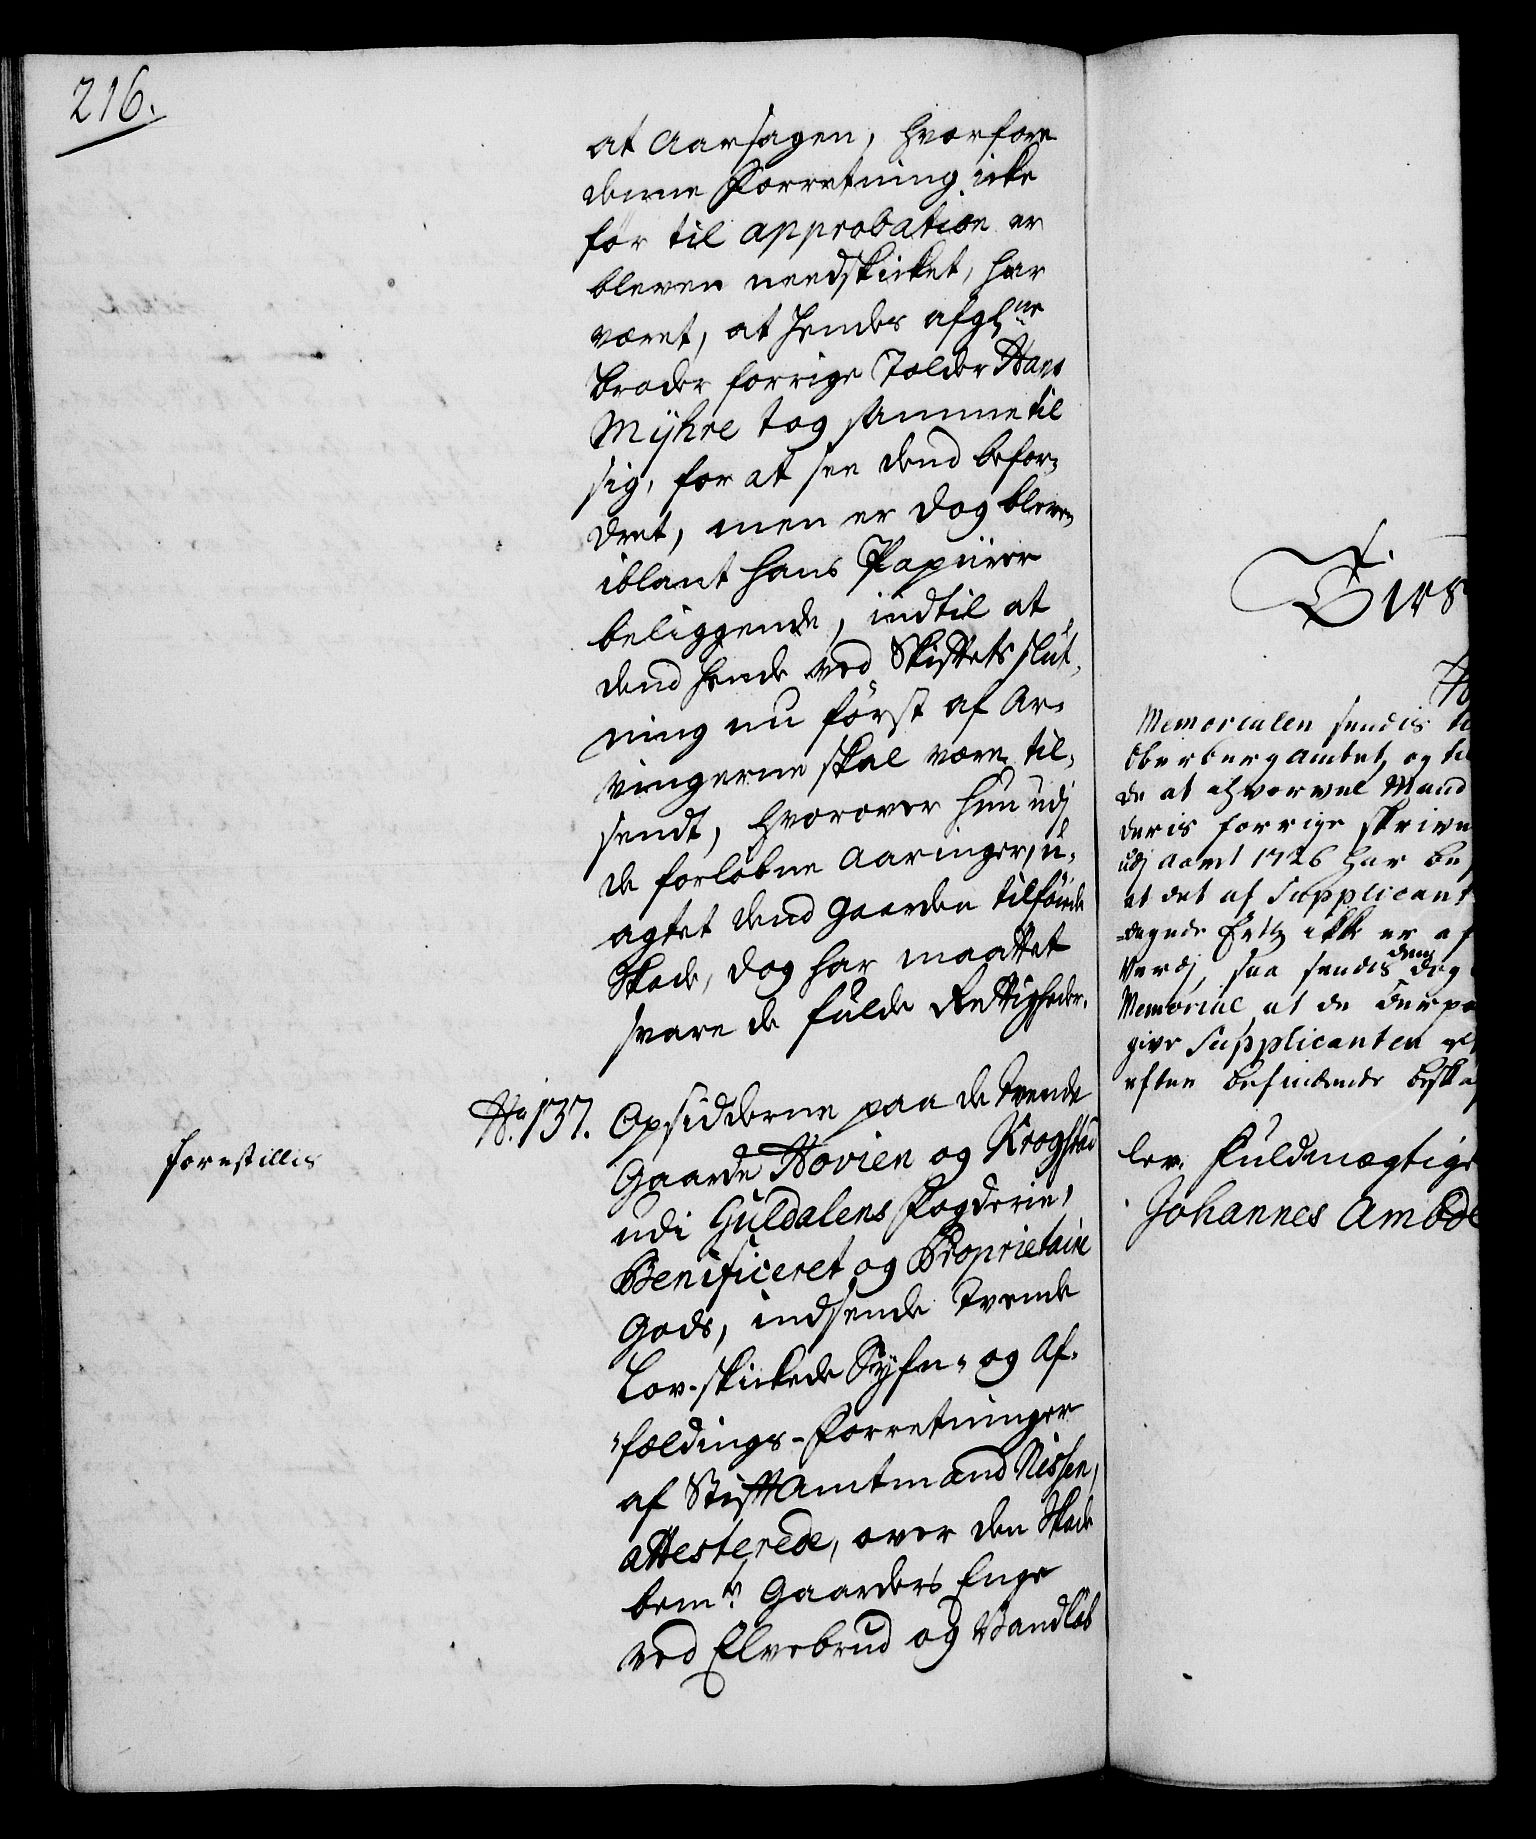 216.
at Aarsagen, hvorfore
denne Forretning icke
før til approbation er
bleven needskicket, har
været, at hendes afgl:ne
broder forrige Tolder Hans
Mijhre tog samme til
sig, for at see dend befor-
dret, men er dog bleven
iblant hans Papiirer
beliggende, indtil at
dend hende ved Skiftets slut-
ning nu først af Ar-
vingerne skal være til-
sendt, hvorover hun udj
de forløbne Aaringer, u-
agtet dend gaarden tilføyede
Skade, dog har maattet
svare de fulde Rettigheder.
forestillis
No. 137. Opsidderne paa de tvende
Gaarde Hovien og Krogstad
udi Guldalens Fogderie,
Benificeret og Proprietaire
Gods, indsende tvende
Lov-skickede Syfn- og Af-
fældings-Forretninger
af Stiftamtmand Nissen,
attesterede, over den Skade
bem.te Gaarders Enge
ved Elvebrud og Vandløb
Memorialen sendis
Oberbergamtet, og
de at ihvorvel Mand
deris forrige skrive
udj aaret 1726 har be
at det af Supplicant
ertz ikke er af
Værdj, saa sendis dem dog
Memorial, at de derpaa
give Supplicanten
efter befindende besk
lev. Fuldmægtige
Johannes Ambde